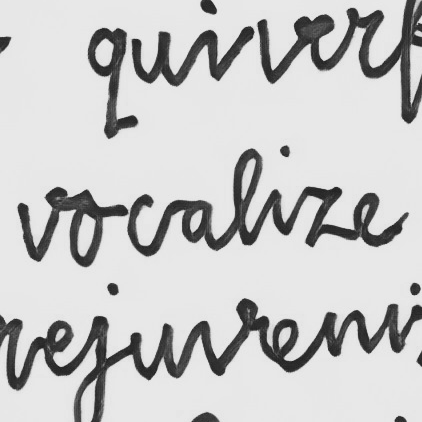 quiverf
vocalize
rejuveni